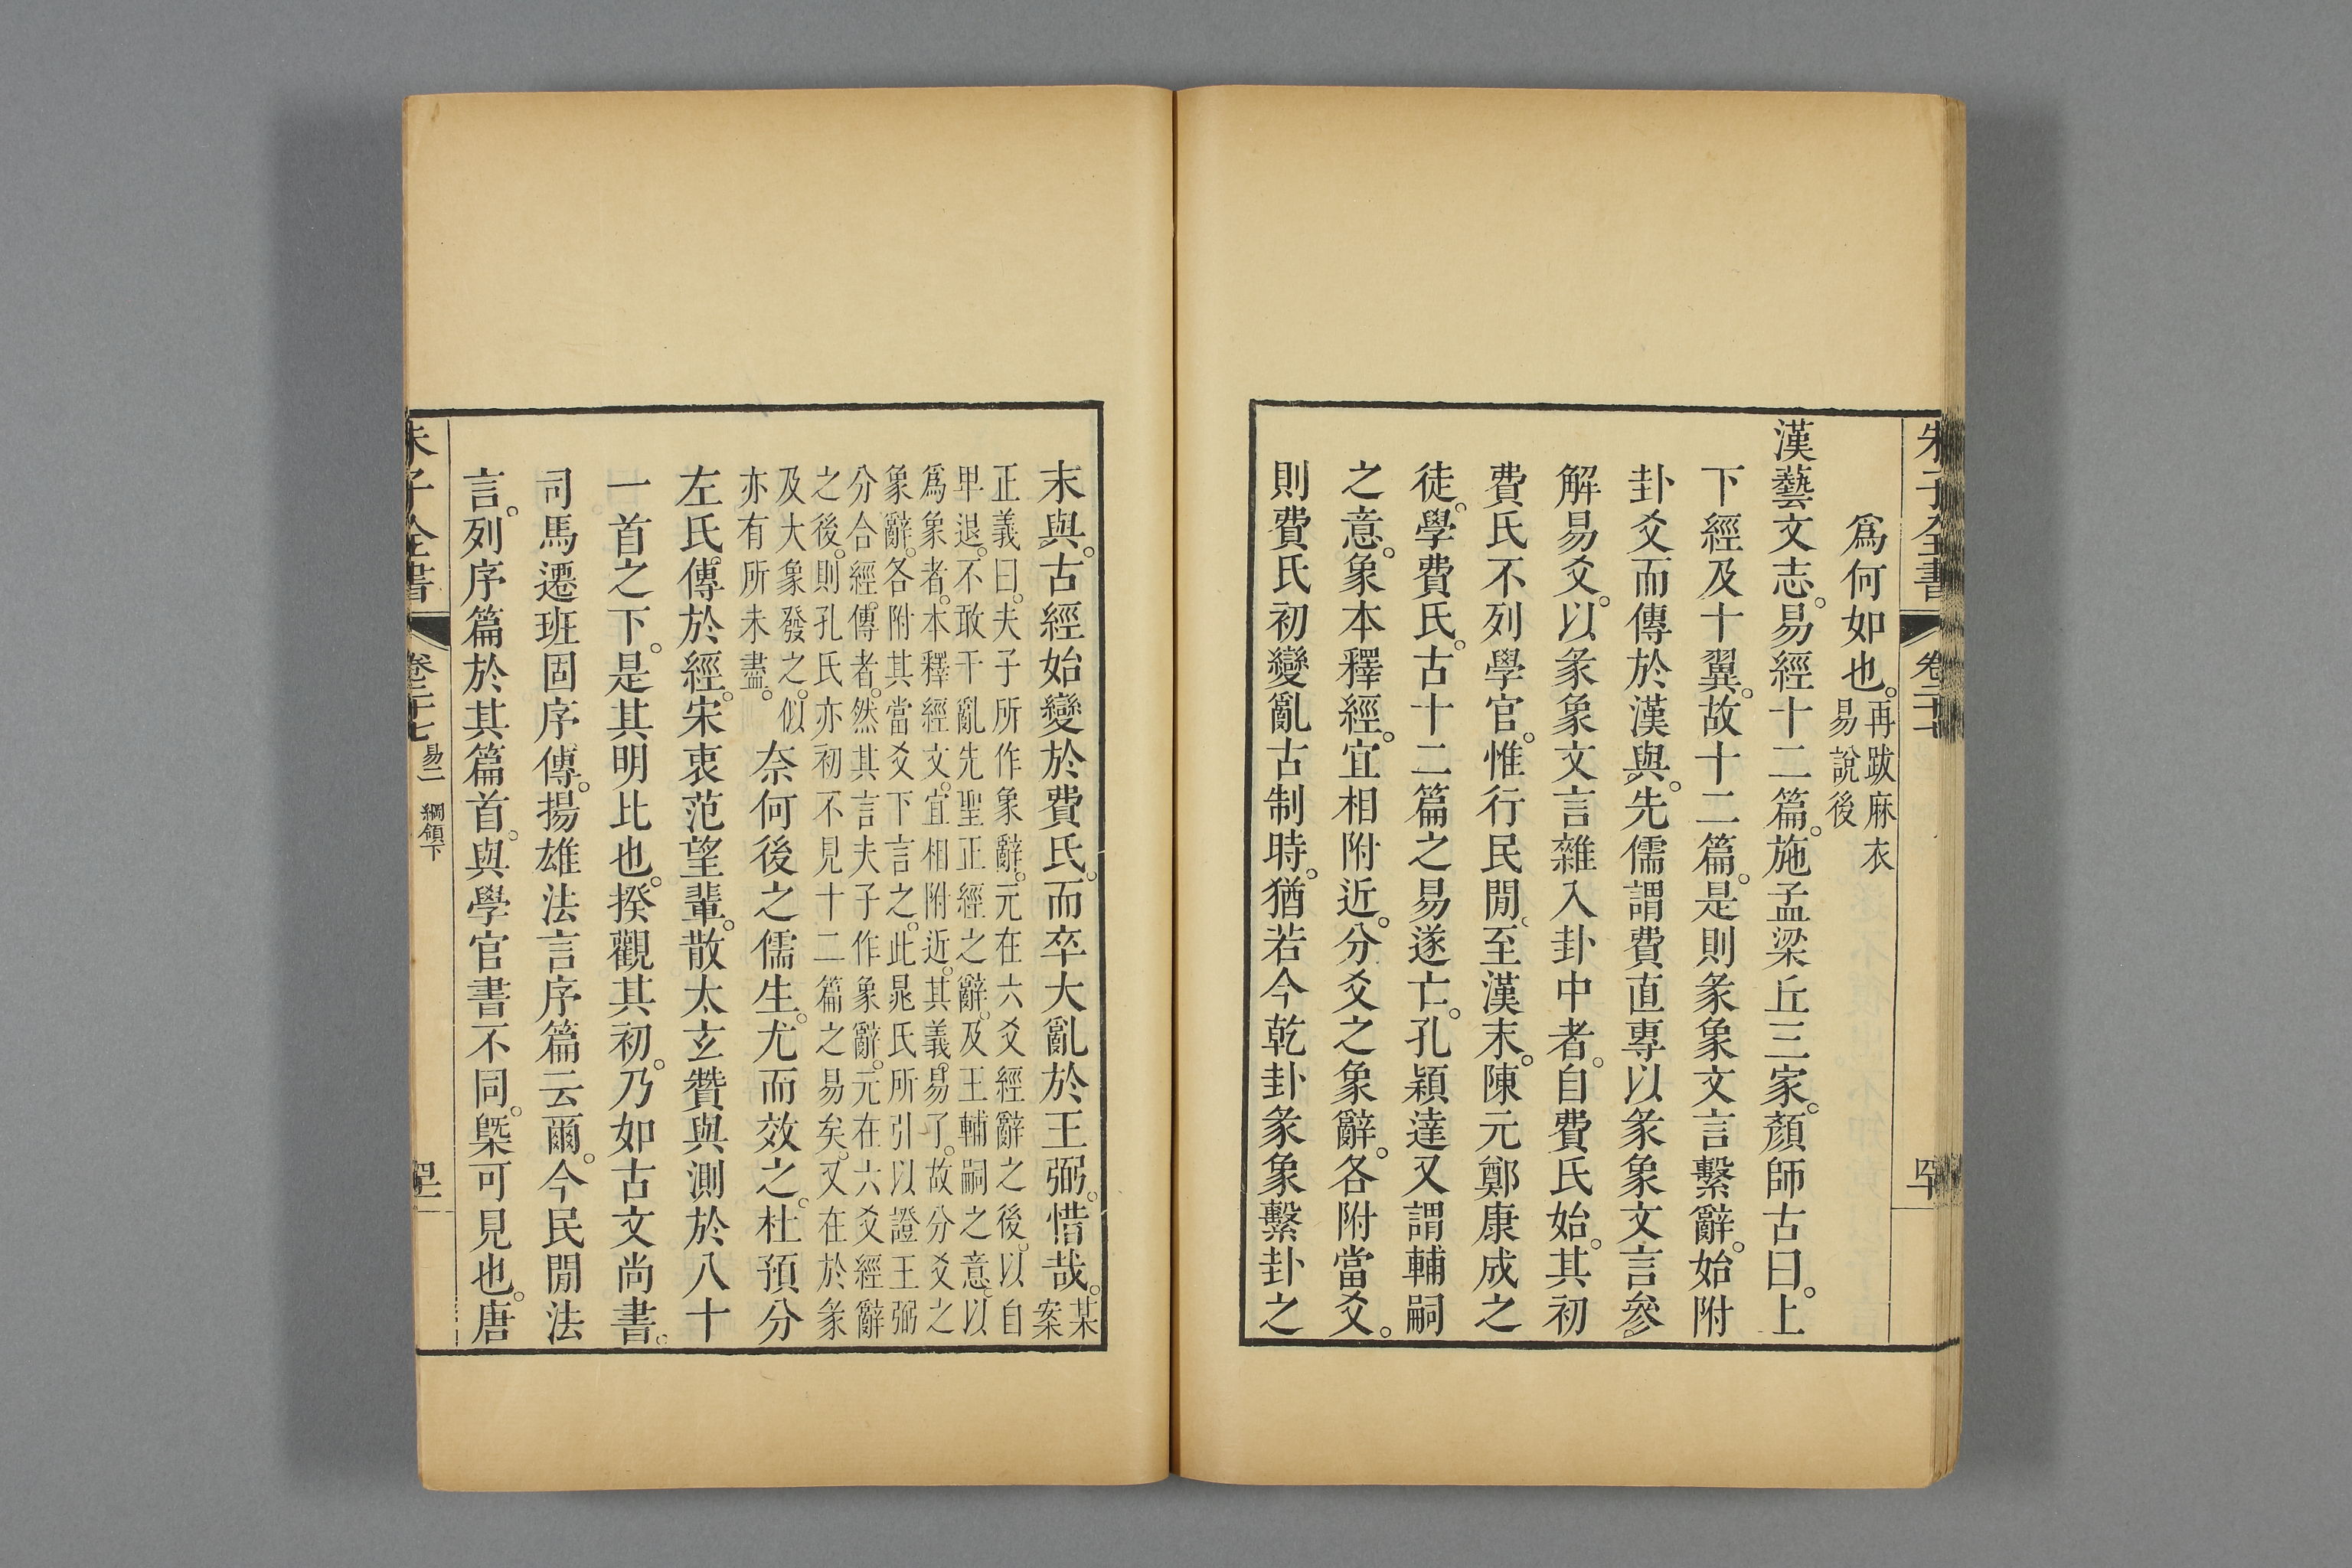 朱子全書 卷二十七 四十
爲何如也。再跋麻衣易說後
漢藝文志。易經十二篇。施孟梁丘三家。顏師古曰。上
下經及十翼。故十二篇。是則彖象文言繫辭。始附
卦爻而傳於漢與。先儒謂費直專以彖象文言參
解易爻。以彖象文言雜入卦中者。自費氏始。其初
費氏不列學官。惟行民閒。至漢末。陳元鄭康成之
徒。學費氏。古十二篇之易遂亡。孔穎達又謂輔嗣
之意。象本釋經。宜相附近。分爻之象辭。各附當爻。
則費氏初變亂古制時。猶若今乾卦彖象繫卦之
末與。古經始變於費氏。而卒大亂於王弼。惜哉。某案
正義曰。夫子所作象辭。元在六爻經辭之後。以自
卑退。不敢干亂先聖正經之辭。及王輔嗣之意。以
爲象者。本釋經文。宜相附近。其義易了。故分爻之
象辭。各附其當爻下言之。此晁氏所引以證王弼
分合經傳者。然其言夫子作象辭。元在六爻經辭
之後。則孔氏亦初不見十二篇之易矣。又在於彖
及大象發之。似
亦有所未盡。
奈何後之儒生。尤而效之。杜預分
左氏傳於經。宋衷范望輩。散太玄贊與測於八十
一首之下。是其明比也。揆觀其初。乃如古文尚書。
司馬遷班固序傳。揚雄法言序篇云爾。今民閒法
言。列序篇於其篇首。與學官書不同。槩可見也。唐
朱子全書 卷二十七 易二 綱領下